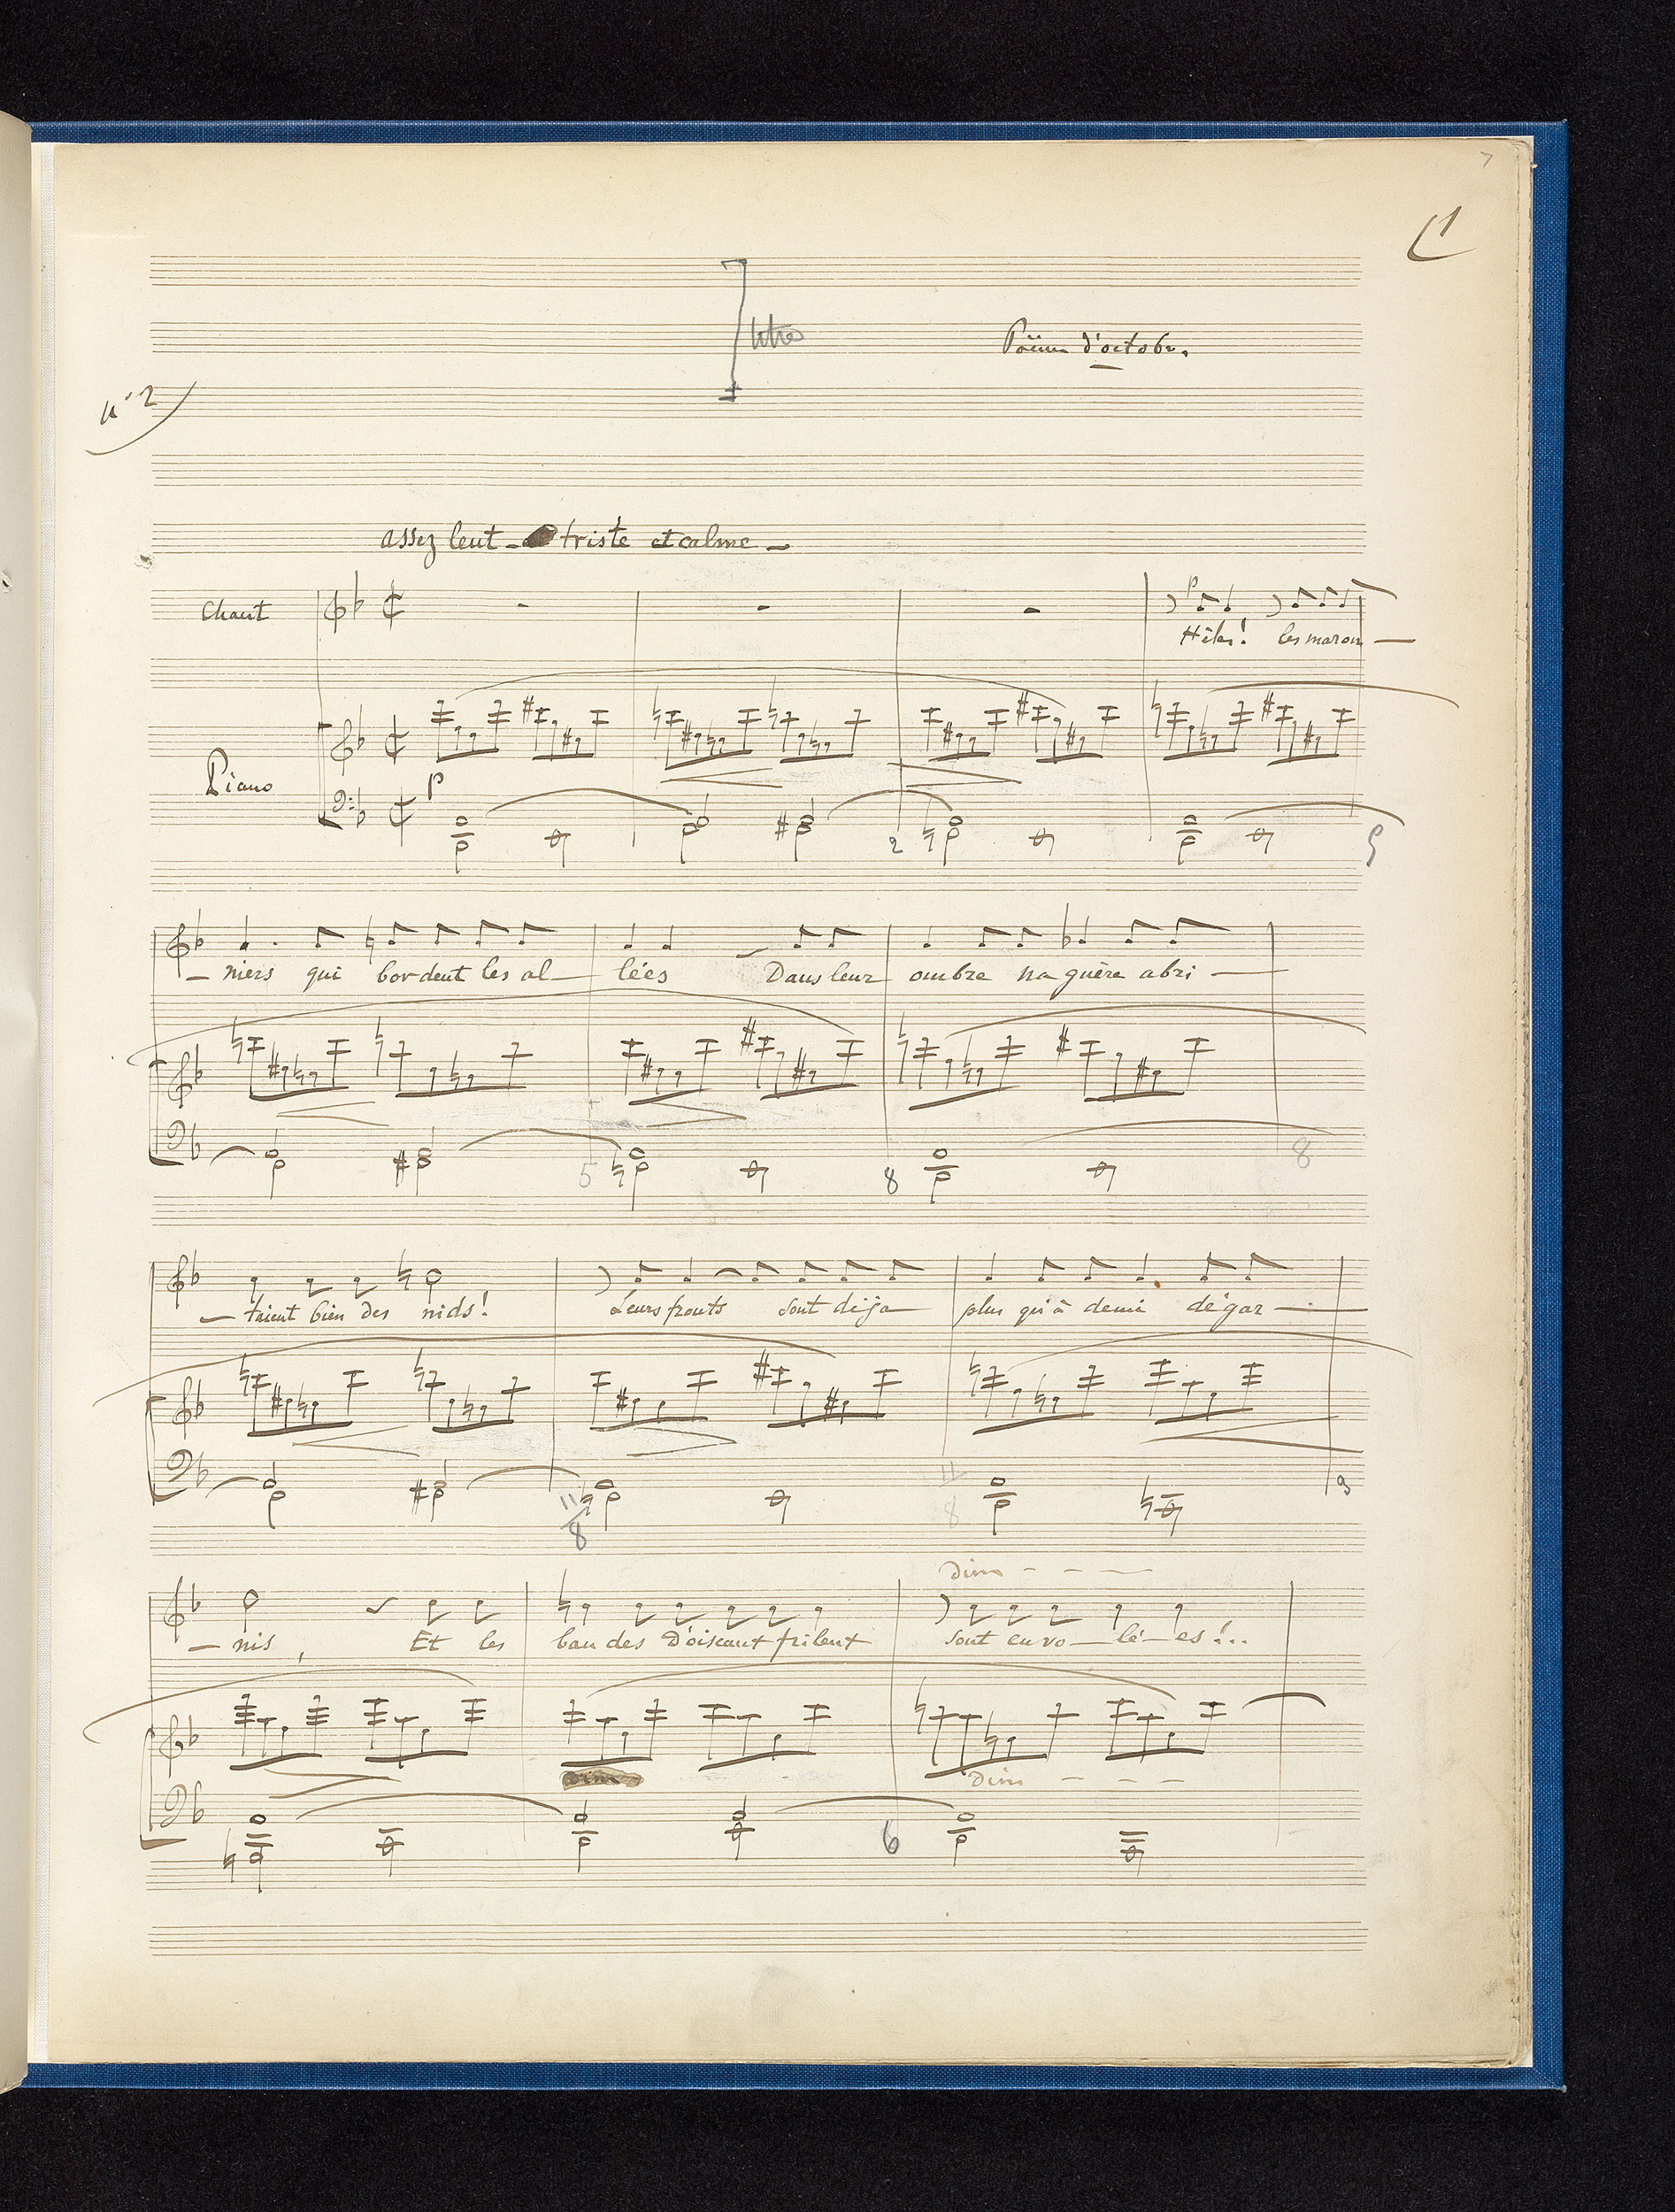 7
1
titre
Poëme d'octobre
n° 2
assez lent - triste et calme -
Chant
p
Hélas! les maron-
Piano
p
2
5
- niers qui bordent les al- lées Dans leur ombre naguère abri-
5 8 8
- taient bien des nids! Leurs fronts sont déja plus qu'à demi dégar-
11 8 11 8 9
Dim - - - -
- nis, Et les bandes d'oiseaux frileux sont envo-lé-es!..
Dim
Dim - - - -
6